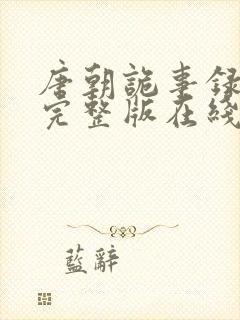 唐朝詭事録
完整版在綫
藍辭